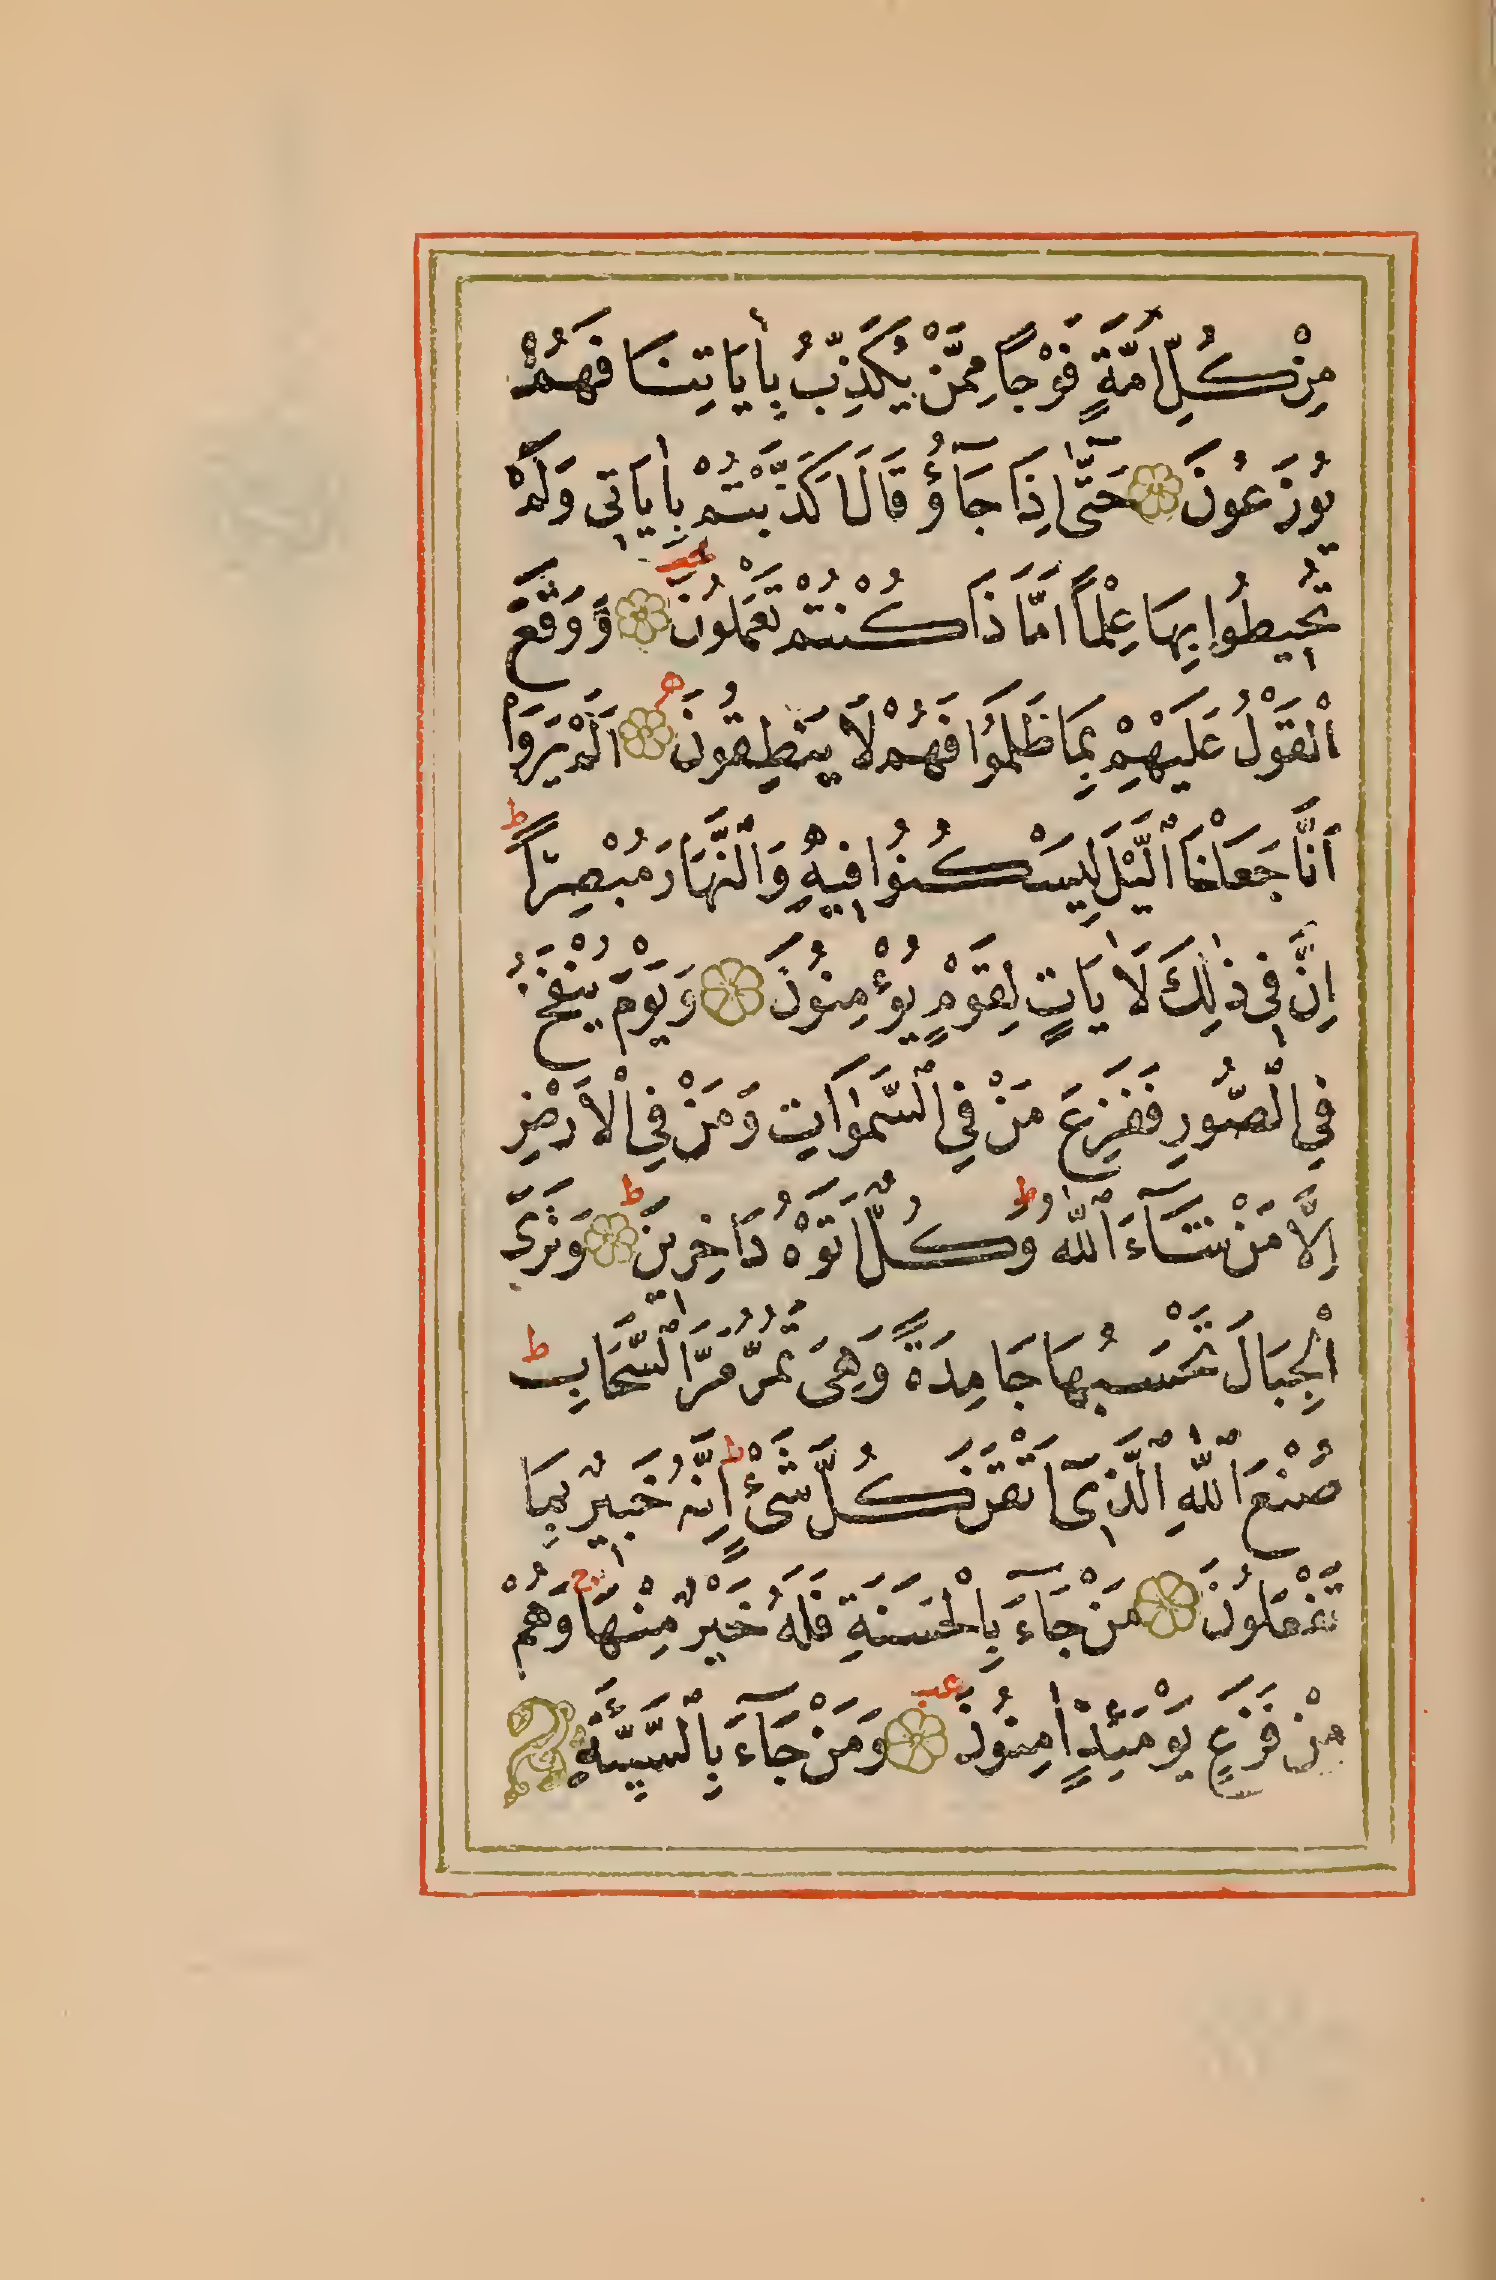 مِنْ كُلِّ اُمَّةٍ فَوْجًا مِمَّنْ يُكَذِّبُ بِاٰيَاتِنَا فَهُمْ
يُوزَعُونَ ۝ حَتّٰٓى اِذَا جَآؤُ قَالَ اَكَذَّبْتُمْ بِاٰيَاتٖي وَلَمْ
تُحٖيطُوا بِهَا عِلْمًا اَمَّا ذَا كُنْتُمْ تَعْمَلُونَ ۝ وَوَقَعَ
اْلقَوْلُ عَلَيْهِمْ بِمَا ظَلَمُوا فَهُمْ لَا يَنْطِقُونَ ۝ اَلَمْ يَرَوْا
اَنَّا جَعَلْنَا الَّيْلَ لِيَسْكُنُوا فٖيهِ وَالنَّهَارَ مُبْصِرًا ط
اِنَّ فٖي ذٰلِكَ لَاٰيَاتٍ لِقَوْمٍ يُؤْمِنُونَ ۝ وَيَوْمَ يُنْفَخُ
فِي الصُّورِ فَفَزِعَ مَنْ فِي السَّمٰوَاتِ وَمَنْ فِي الْاَرْضِ
اِلَّا مَنْ شَآءَ اللّٰهُ ط وَكُلٌّ اَتَوْهُ دَاخِرٖينَ ط ۝ وَتَرَى
الْجِبَالَ تَحْسَبُهَا جَامِدَةً وَهِيَ تَمُرُّ مَرَّ السَّحَابِ ط
صُنْعَ اللّٰهِ الَّذٖٓي اَتْقَنَ كُلَّ شَيْءٍ ط اِنَّهُ خَبٖيرٌ بِمَا
تَفْعَلُونَ ۝ مَنْ جَآءَ بِالْحَسَنَةِ فَلَهُ خَيْرٌ مِنْهَا ج وَهُمْ
مِنْ فَزَعٍ يَوْمَئِذٍ اٰمِنُونَ عب ۝ وَمَنْ جَآءَ بِالسَّيِّئَةِ